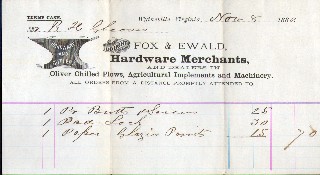 TERMS CASH. Wytheville, Virginia, Nov 8 188
M R H Gleaves
BOUGHT OF FOX & EWALD,
Hardware Merchants,
AND DEALERS IN
Oliver Chilled Plows, Agricultural Implements and Machinery.
ALL ORDERS FROM A DISTANCE PROMPTLY ATTENDED TO.
1 Pr Butts & Screws 25
1 Pad Lock 30
1 Paper Glazier Points 15 70